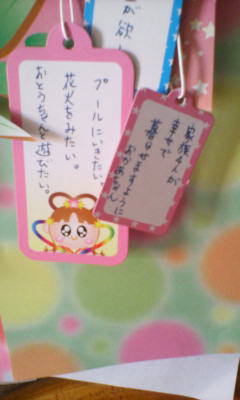 が欲し
プールにいきたい。
花火をみたい。
おとうちゃんと遊びたい。
家族4人が
幸せで
暮らせますように
おかあちゃん